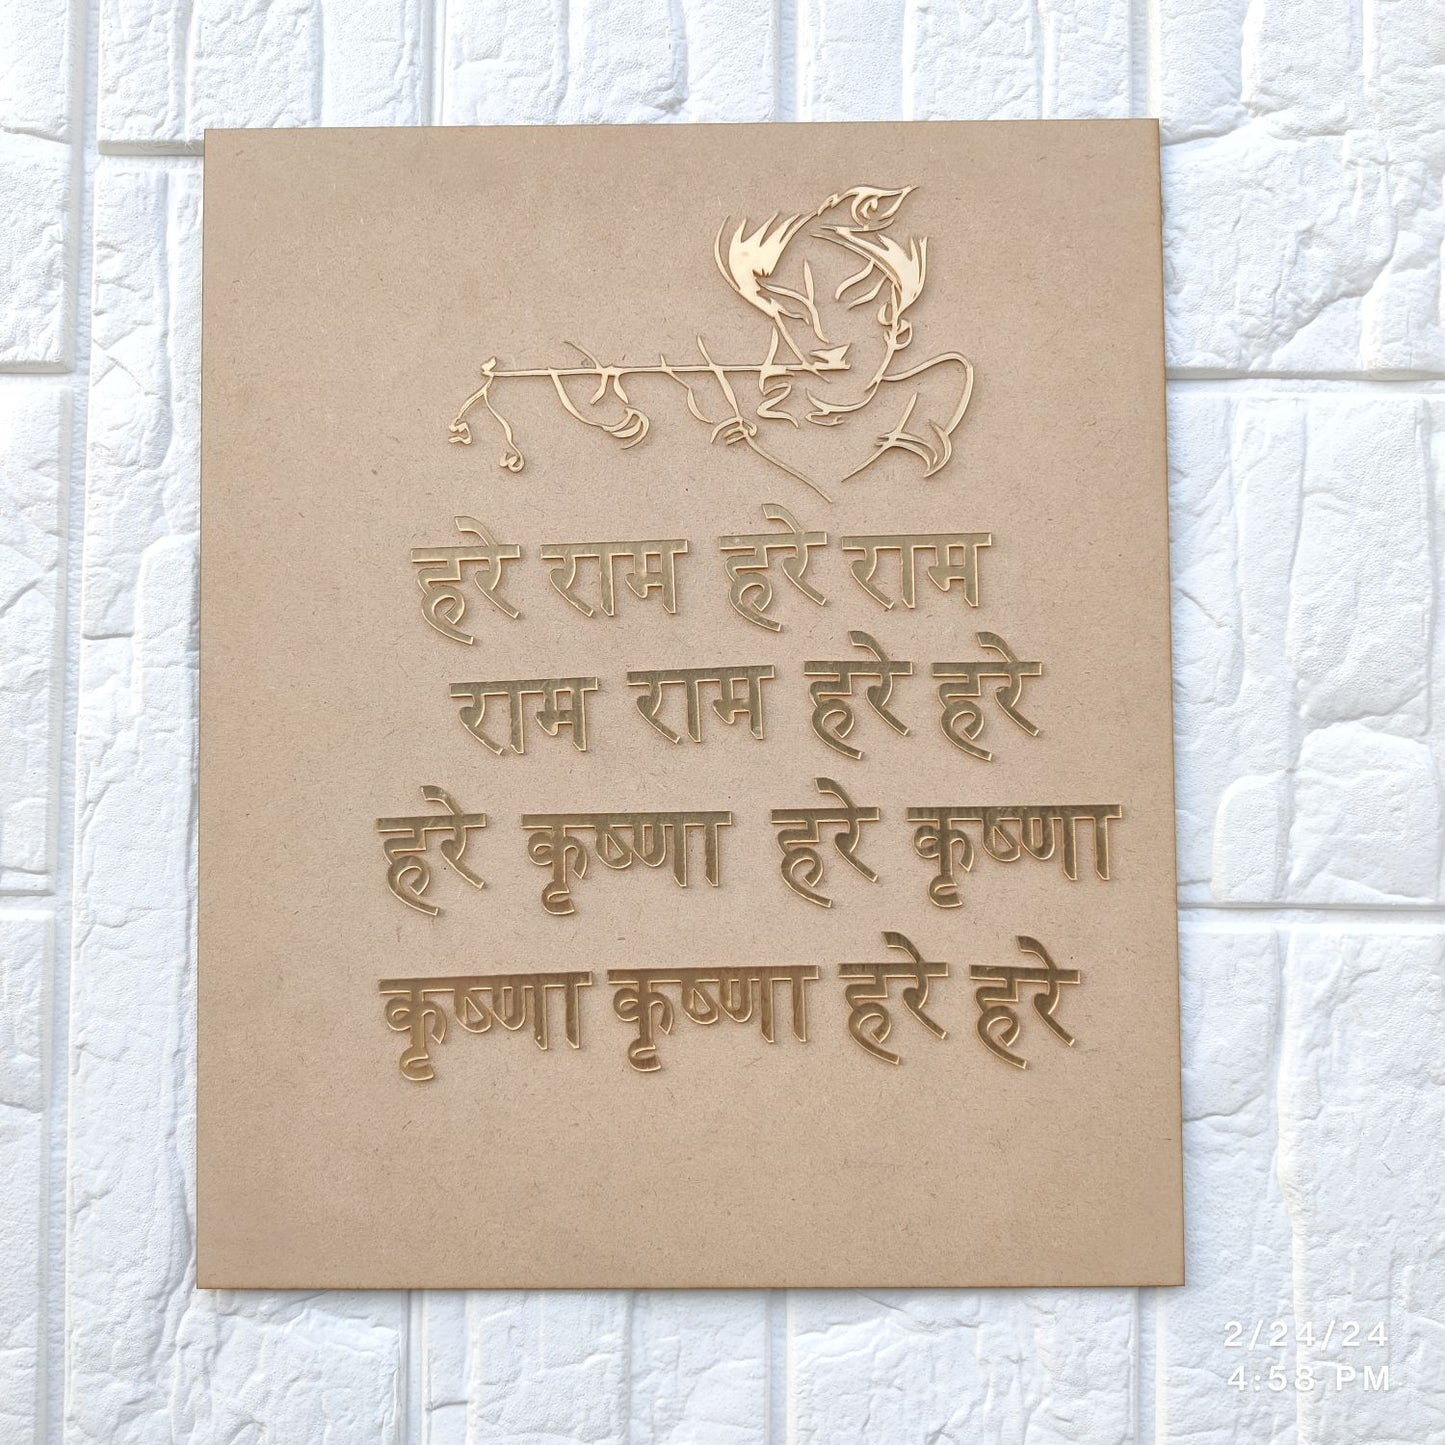 हरे राम हरे राम
राम राम हरे हरे
हरे कृष्णा हरे कृष्णा
कृष्णा कृष्णा हरे हरे
2/24/24
4:58 PM